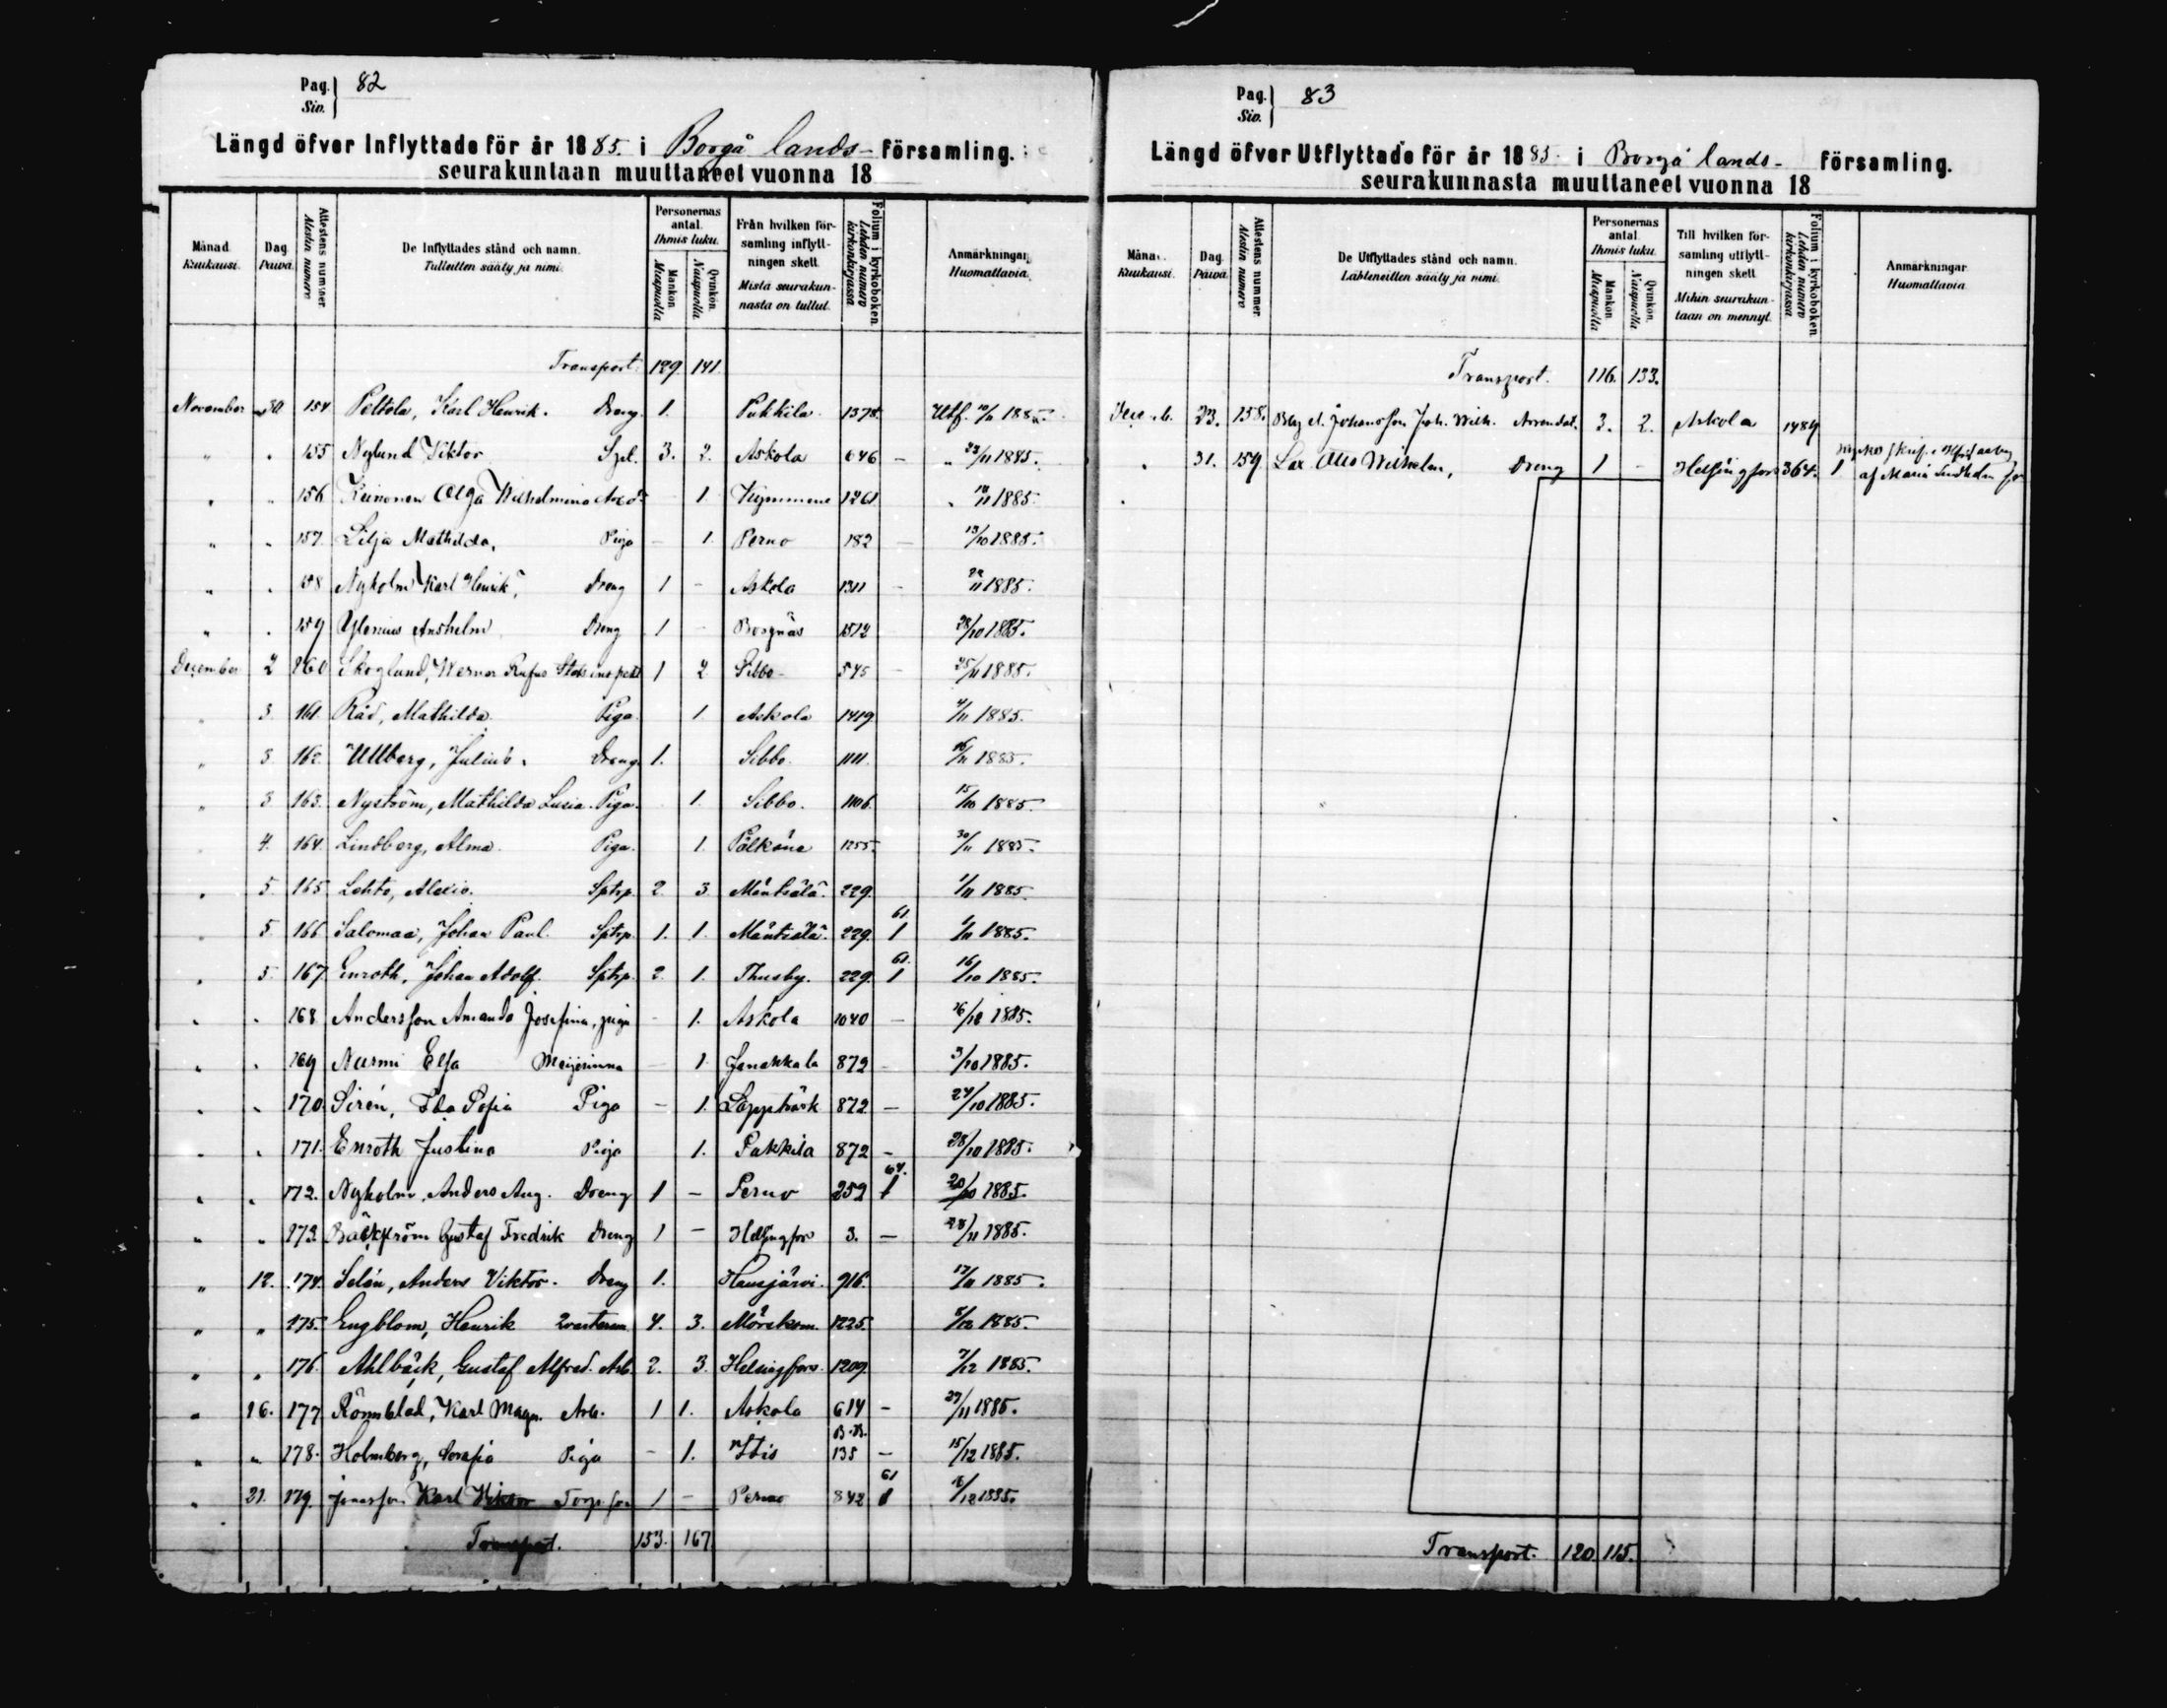 Pag. 82
Siv.
Längd öfver Inflyttade för år 1885. i Borgå lands- församling.
seurakuntaan muuttaneet vuonna 18
Månad. Kuukausi.
Dag. Päivä.
Attestens nummer. Atestin numero
De Inflyttades stånd och namn. Tulleitten sääty ja nimi.
Personernas antal. Ihmis luku.
Mankön. Miespuolia
Qvinkön. Naispuolia
Från hvilken församling inflyttningen skett. Mistä seurakunnasta on tullut.
Folium i kyrkoboken. Lehden numero kirkonkirjassa
Anmärkningar. Huomattavia.
Transport. 129. 141.
November 30 154 Peltola, Karl Henrik. Dreng. 1. Pukkila 1378. Utf. 10/11 1885.
" " 155 Nylund Viktor 3. 2. Askola 646 - " 23/11 1885.
" " 156 Keinonen Olga Wilhelmina 1. Kymmene 1261 " 1885.
" " 157. Lilja Mathilda, Piga - 1. Perno 182 - 13/10 1885.
" " 158 Nyholm Karl Henrik, Dreng 1 - Askola 1311 - 1885.
" " 159 Ylenius Anshelm Dreng 1 - Borgnäs 1512 28/10 1885.
December 2 160 Skoglund, Werner Rufus 1 2 Sibbo 545 - 25/11 1885.
" 3. 161. Råd, Mathilda. Piga. 1. Askola 1419. 4/11 1885.
" 3 162. Ullberg, Julius. Dreng. 1. Sibbo. 1111. 16/11 1885.
" 3 163. Nyström, Mathilda Lusia. Piga. 1. Sibbo. 1106. 15/10 1885.
" 4. 164. Lindberg, Alma. Piga. 1. Pälkäne 1255. 30/11 1885.
" 5. 165 Lehto, Alexis. Sptrp. 2. 3. Mäntsälä. 229. 1/11 1885.
" 5. 166 Salomaa, Johan Paul. Sptrp. 1. 1. Mäntsälä. 229. 61. 1 1/11 1885.
" 5. 167 Enroth, Johan Adolf. Sptrp. 2. 1. Thusby. 229. 61. 1 16/10 1885.
" " 168 Andersson Amanda Josefina, piga - 1. Askola 1040 - 1885.
" " 169 Nurmi Elsa Meijerinna - 1. Janakkala 872 - 3/10 1885.
" " 170. Sirén, Ida Sofia Piga - 1. Lappträsk 872 - 24/10 1885.
" " 171. Enroth Justina Piga 1. Pukkila 872 - 28/10 1885.
" " 172. Nyholm, Anders Aug. Dreng 1 - Perno 252 64. 1 20/10 1885.
" " 173. Bäckström Gustaf Fredrik Dreng 1 - Helsingfors 3. - 28/11 1885.
" 12. 174. Selén, Anders Viktor. Dreng 1. Hausjärvi. 916. 17/11 1885.
" " 175. Engblom, Henrik 4. 3. Mörskom. 1225. 1885.
" " 176. Ahlbäck, Gustaf Alfred. Arb. 2. 3. Helsingfors. 1209. 7/12 1885.
" 16. 177 Rönnblad, Karl Magn. Arb. 1 1. Askola 614 - 27/11 1885.
" " 178. Holmberg, Serafia Piga - 1. Itis 135 - 15/12 1885.
" 21. 179. Jonasson Karl Viktor 1 - Perno 842 61 1 1885.
Transport. 153. 167.
Pag. 83
Siv.
Längd öfver Utflyttade för år 1885. i Borgå lands- församling.
seurakunnasta muuttaneet vuonna 18
Månad. Kuukausi.
Dag. Päivä.
Attestens nummer. Atestin numero
De Utflyttades stånd och namn. Lähteneitten sääty ja nimi.
Personernas antal. Ihmis luku.
Mankön. Miespuolia
Qvinkön. Naispuolia
Till hvilken församling utflyttningen skett. Mihin seurakuntaan on mennyt.
Folium i kyrkoboken. Lehden numero kirkonkirjassa
Anmärkningar. Huomattavia
Transport. 116. 133.
23. 158. Johansson Joh. Wilh. 3. 2. Askola 1489
" 31. 159 Lax Otto Wilhelm, Dreng 1 - Helsingfors 364. 1
af Maria
Transport. 120 115.